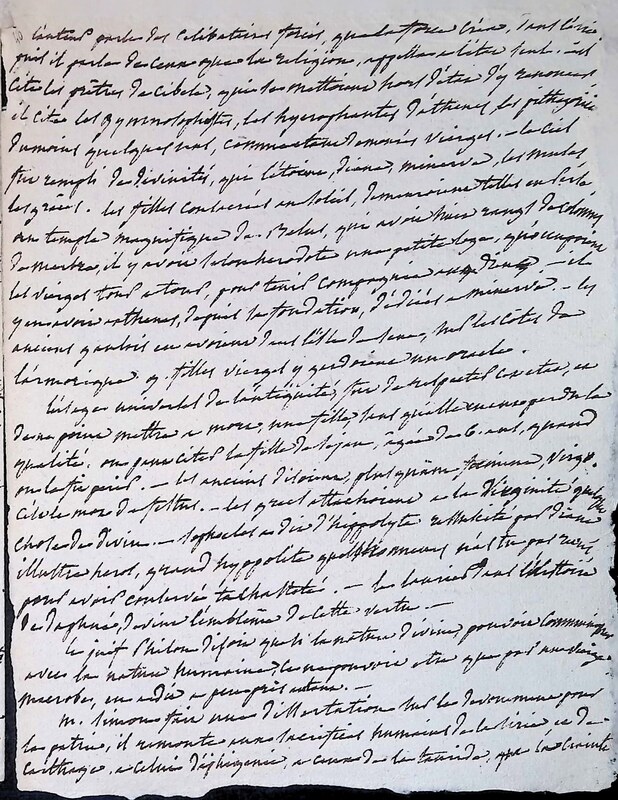 l'auteur parle des celibataires forcés, que la force créa, dans l'érie
puis il parle de ceux que la religion, appella a être seul. il
cite les prêtres de Cibele, qui se mettoient hors d'état d'y renoncer
il cite les gymnosophistes, les hyerophantes d'athenes, les
du moins quelques uns, vierges. le ciel
fut rempli de divinités, que diane, minerve, les muses,
les graces. les filles consacrées au soleil, telles en Perse
au temple magnifique de Belus, qui avoit huit rangs de colonnes
de marbre, il y avoit selon herodote une petite loge,
les vierges tour a tour, pour tenir compagnie au dieu. — il
y en avoit a athenes, depuis sa fondation, dédiées a minerve. — les
anciens gaulois en avoient dans l'isle de sene, sur les cotes de
l'armorique. 9. filles vierges y gardoient un oracle.
l'usage universel de l'antiquité, fut de respecter cet etat, en
de ne point mettre a mort, une fille, sans qu'elle eut perdu la
qualité. on peut citer la fille de sejan, agée de 6. ans, quand
on la fit perir. — les anciens disoient, plus quam femina, virgo.
c'est le mot de festus. — les grecs attachoient a la virginité quelque
chose de divin. — sophocles a dit d'hippolyte ressuscité par diane
illustre heros, grand hyppolite quels honneurs n'as tu pas reçus,
pour avoir conservé ta chasteté. — le laurier dans l'histoire
de daphné, devint l'emblême de cette vertu. —
le juif Philon disoit que si la nature divine, pouvoit communiquer
avec la nature humaine, ce ne pouvoit etre que par une vierge
macrobe, en a dit a peu près autant. —
m. simon fait une dissertation sur le devouement pour
la patrie, il remonte aux sacrifices humains de la sirie et de
carthage, a celui d'iphigenie, a ceux de la tauride, que la crainte